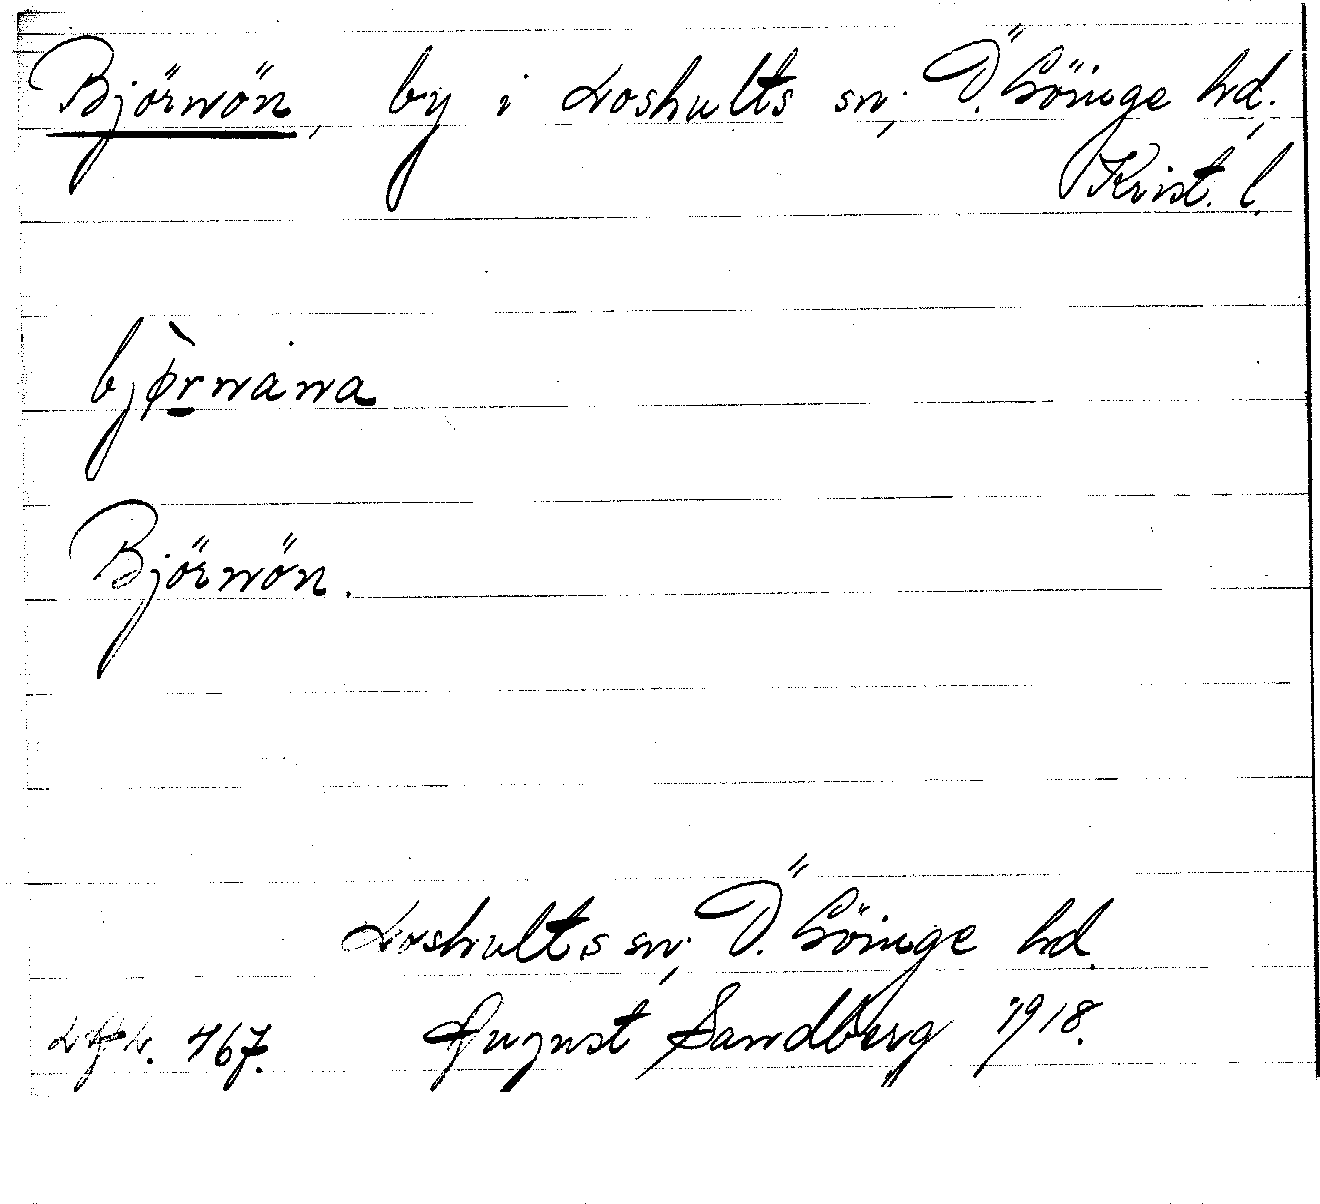 Björnön, by i Loshults sn, Ö. Göinge hd,
Krist. l.
bjø̀rnána
Björnön.
Loshults sn, Ö. Göinge hd.
467. August Sandberg 1918.